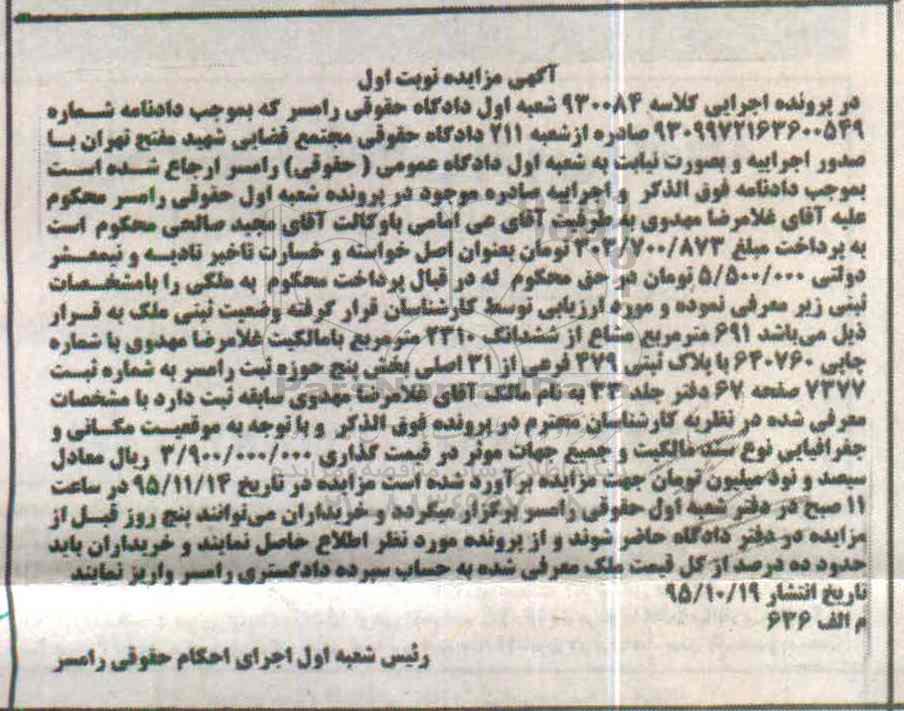 آگهی مزایده نوبت اول
در پرونده اجرایی کلاسه ۹۳۰۰۸۴ شعبه اول دادگاه حقوقی رامسر که بموجب دادنامه شماره
۹۳۰۹۹۷۲۱۶۳۶۰۰۵۴۹ صادره ازشعبه ۲۱۱ دادگاه حقوقی مجتمع قضایی شهید مفتح تهران با
صدور اجراییه و بصورت نیابت به شعبه اول دادگاه عمومی ( حقوقی) رامسر ارجاع شده است
بموجب دادنامه فوق الذکر و اجراییه صادره موجود در پرونده شعبه اول حقوقی رامسر محکوم
علیه آقای غلامرضا مهدوی به طرفیت آقای عی امامی باوکالت آقای مجید صالحی محکوم است
به پرداخت مبلغ ۳۰۳/۷۰۰/۸۷۳ تومان بعنوان اصل خواسته و خسارت تاخیر تادیه و نیمعشر
دولتی ۵/۵۰۰/۰۰۰ تومان در حق محکوم له در قبال پرداخت محکوم به ملکی را بامشخصات
ثبتی زیر معرفی نموده و مورد ارزیابی توسط کارشناسان قرار گرفته وضعیت ثبتی ملک به قرار
ذیل می‌باشد ۶۹۱ مترمربع مشاع از ششدانگ ۲۳۱۰ مترمربع بامالکیت غلامرضا مهدوی با شماره
چاپی ۶۴۰۷۶۰ با پلاک ثبتی ۴۷۹ فرعی از ۳۱ اصلی بخش پنج حوزه ثبت رامسر به شماره ثبت
۷۳۷۷ صفحه ۶۷ دفتر جلد ۳۳ به نام مالک آقای غلامرضا مهدوی سابقه ثبت دارد با مشخصات
معرفی شده در نظریه کارشناسان محترم در پرونده فوق الذکر و با توجه به موقعیت مکانی و
جغرافیایی نوع سند مالکیت و جمیع جهات موثر در قیمت گذاری ۳/۹۰۰/۰۰۰/۰۰۰ ریال معادل
سیصد و نود میلیون تومان جهت مزایده برآورد شده است مزایده در تاریخ ۹۵/۱۱/۱۴ در ساعت
۱۱ صبح در دفتر شعبه اول حقوقی رامسر برگزار میگردد و خریداران می‌توانند پنج روز قبل از
مزایده در دفتر دادگاه حاضر شوند و از پرونده مورد نظر اطلاع حاصل نمایند و خریداران باید
حدود ده درصد از کل قیمت ملک معرفی شده به حساب سپرده دادگستری رامسر واریز نمایند
تاریخ انتشار ۹۵/۱۰/۱۹
م الف ۶۳۶
رئیس شعبه اول اجرای احکام حقوقی رامسر